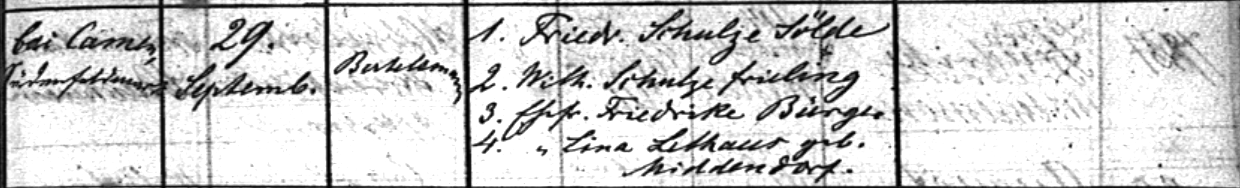 bei Camen,
29.
Septemb.
1. Friedr. Schulze Sölde
2. Wilh. Schulze frieling
3. Ehfr. Friedrike Bürger
4. " Lina Lethaus geb.
Middendorf.